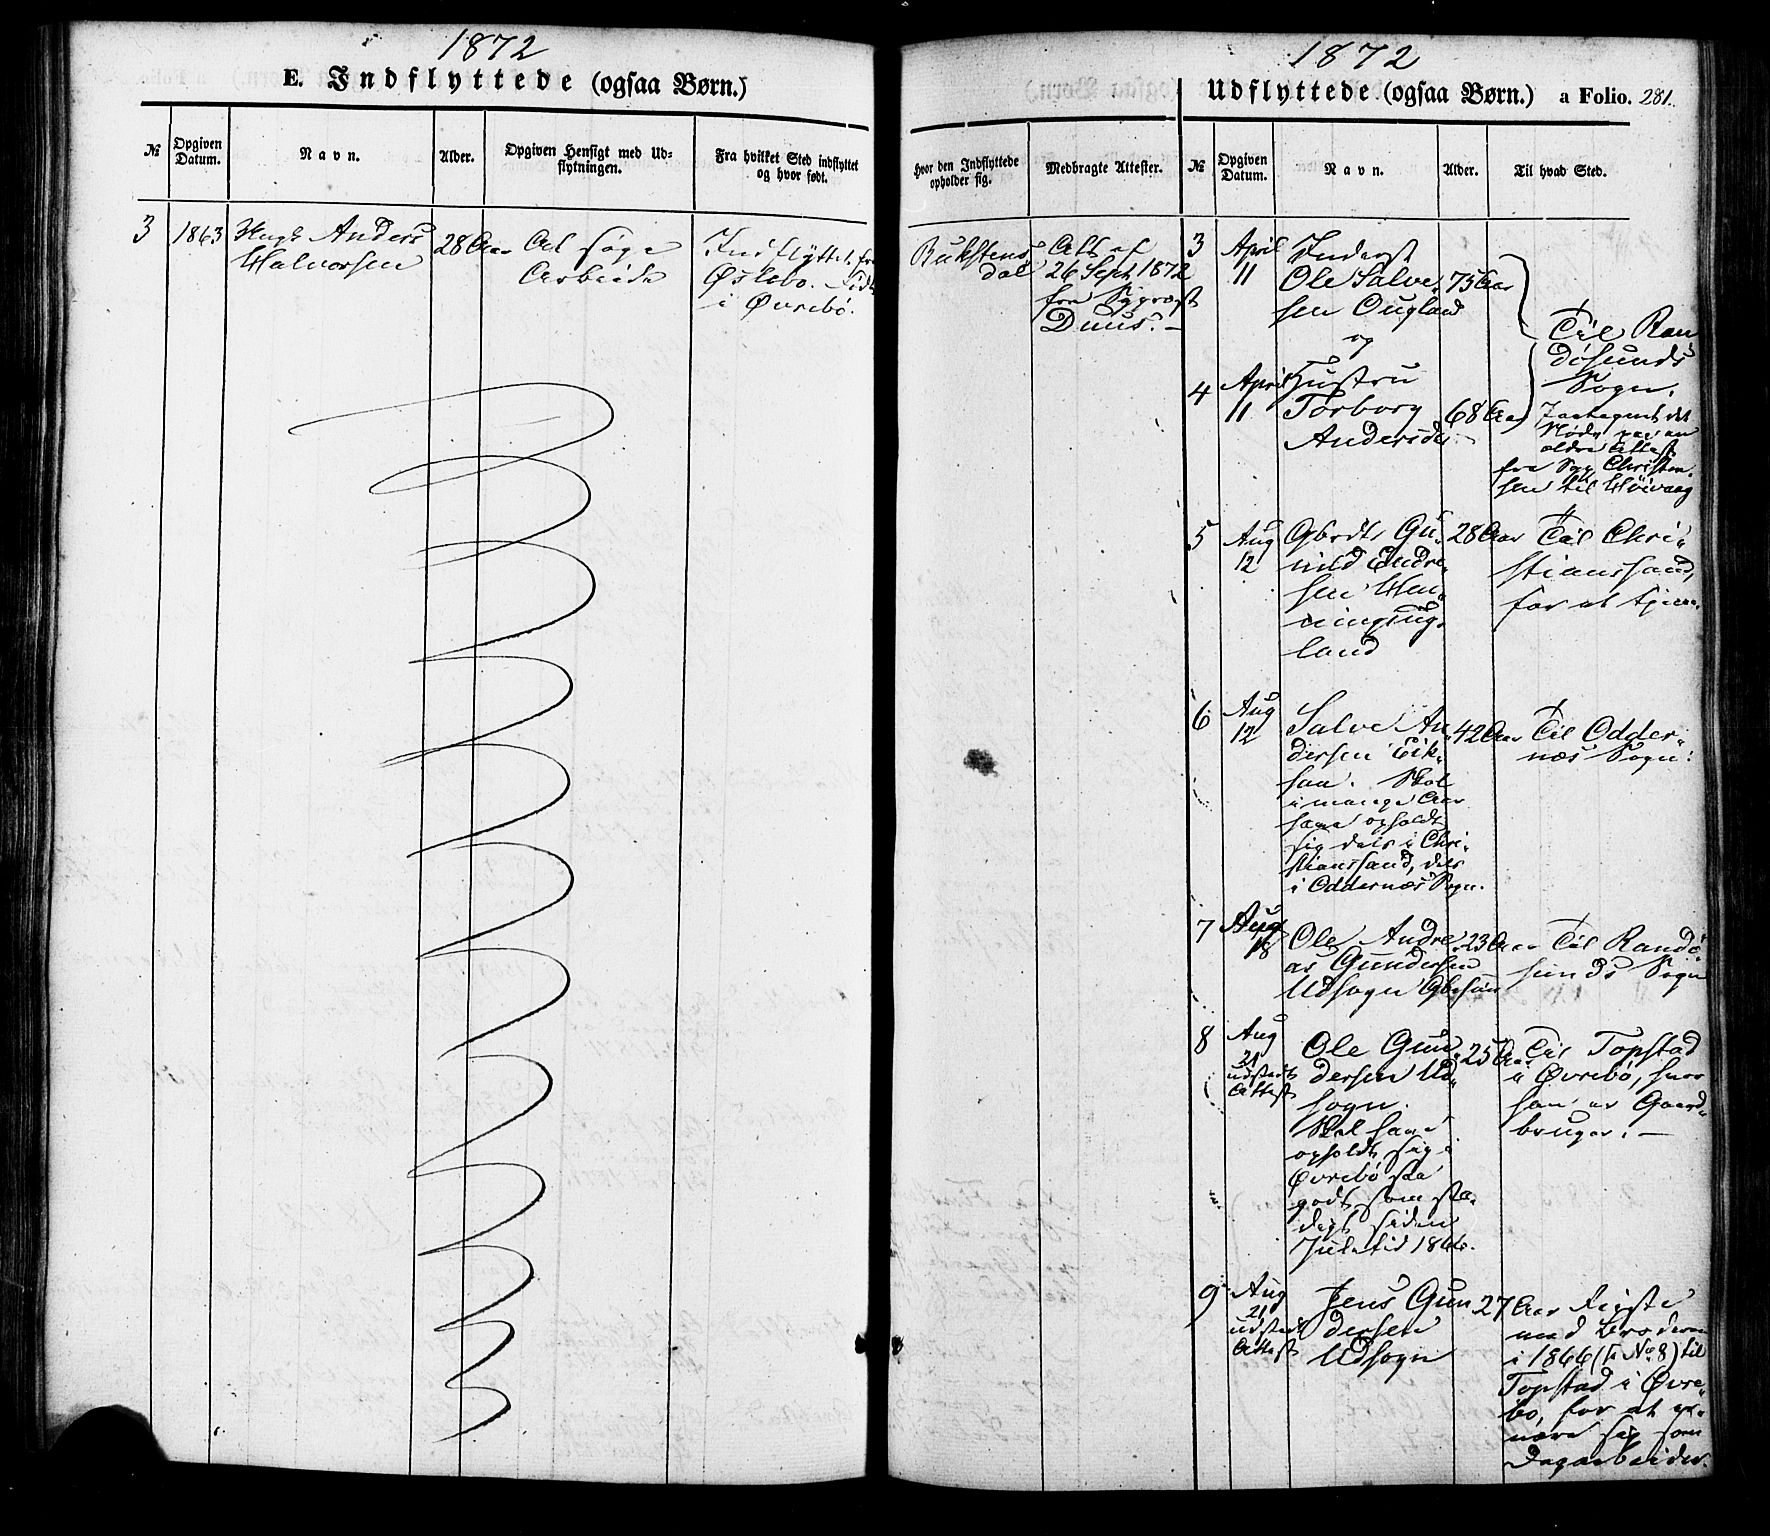 1872
E. Indflyttede (ogsaa Børn.)
№
Opgiven
Datum.
Navn.
Alder.
Opgiven Hensigt med Ud-
flytningen.
Fra hvilket Sted indflyttet
og hvor født.
Hvor den Indflyttede
opholder sig.
Medbragte Attester.
3
1863
Anders
Halvorsen
28 Aar
At søge
Arbeide
Indflyttet fra
Øslebo. Født
i Øvrebö.
Att. af
26 Sept 1872
fra
Duus. —
1872
Udflyttede (ogsaa Børn.) a Folio. 281.
№
Opgiven
Datum.
Navn.
Alder.
Til hvad Sted.
3
April
11
Inderst
Ole Salve-
sen Ougland
75 Aar
og
4
April
11
Hustru
Torborg
Andersdr.
68 Aar
Til Ran
dösunds
Sogn.
ældre Attest
fra Christen-
sen til Høivaag
5
Aug
12
Gu-
nild Endre-
sen Hen-
ningsug-
land
28 Aar
Til Chri-
stianssand,
for at tjene.
6
Aug
12
Salve An-
dersen Eik-
saa. Skal
i mange Aar
have opholdt
sig dels i Chri-
stianssand, dels
i Oddernæs Sogn.
42 Aar
Til Odder-
næs Sogn.
7
Aug
18
Ole Andre-
as Gundersen
Udsogn
23 Aar
Til Randö-
sunds Sogn
8
Aug
21
udstedt
Attest
Ole Gun-
dersen Ud-
sogn.
Skal have
opholdt sig i
Øvrebö saa
godt som sta-
digt siden
Juletid 1866.
25 Aar
Til Topstad
i Øvrebö, hvor
han er Gaard-
bruger. —
9
Aug
21
udstedt
Attest
Jens Gun
dersen
Udsogn
27 Aar
Reiste
med Broderen
i 1866 (f. No 8) til
Topstad i Øvre-
bo, for at er-
nære sig som
Dagarbeider.